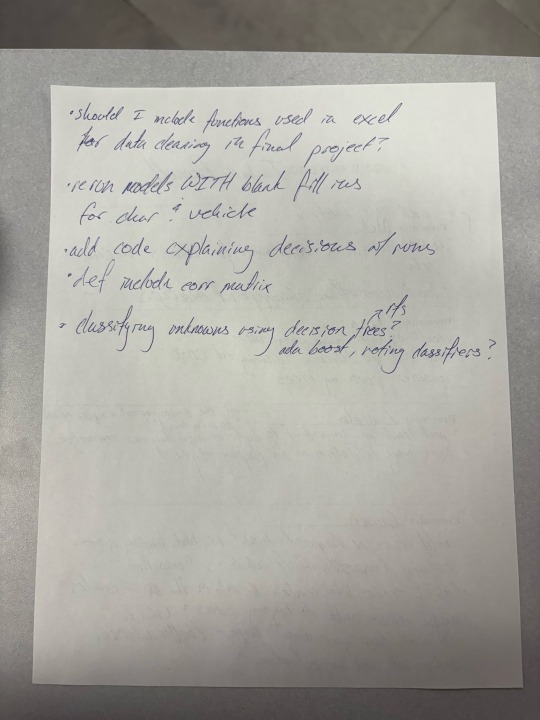 • should I include functions used in excel
for data cleaning in final project?
• rerun models WITH blank fill ins
for char & vehicle
• add code explaining decisions of rows
• def include corr matrix
• classifying unknowns using decision trees? ↗ rfs
ada boost, voting classifiers?